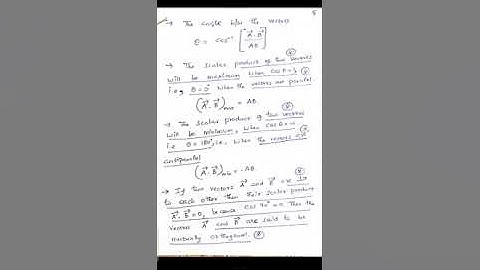 5
→ The angle b/w the vectors
θ = cos⁻¹ [A⃗·B⃗ / AB]
→ The scalar product of two vectors
will be maximum when cos θ = 1
i.e., θ = 0° when the vectors are parallel.
(A⃗·B⃗)max = AB.
→ The scalar product of two vectors
will be minimum, when cos θ = -1
i.e θ = 180°, i.e., when the vectors are
antiparallel
(A⃗·B⃗)min = -AB.
→ If two vectors A⃗ and B⃗ are ⊥r
to each other then their scalar product
A⃗·B⃗ = 0, because cos 90° = 0. Then the
vectors A⃗ and B⃗ are said to be
mutually orthogonal.